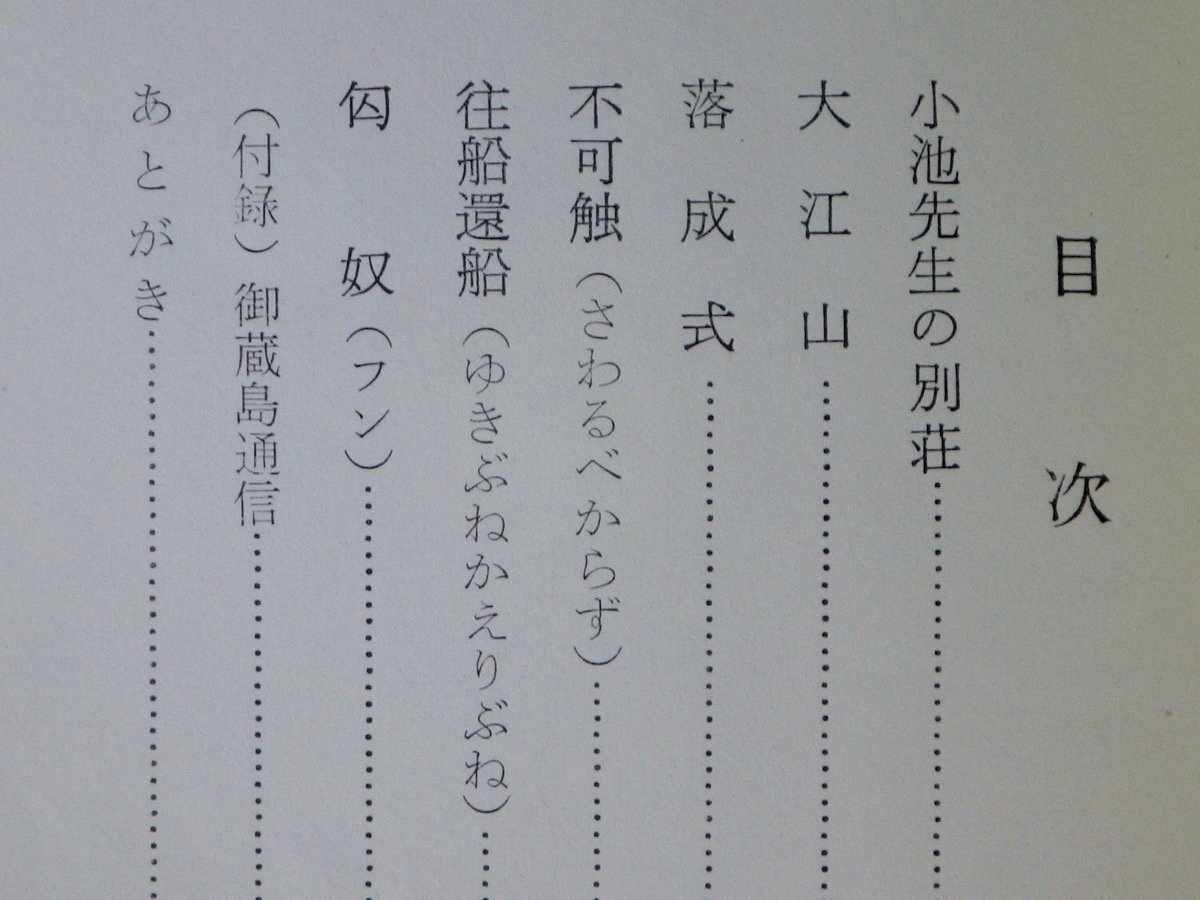 目次
小池先生の別荘……………
大江山……………
落成式……………
不可触（さわるべからず）……………
往船還船（ゆきぶねかえりぶね）……
匈奴（フン）……………
（付録）御蔵島通信……………
あとがき……………